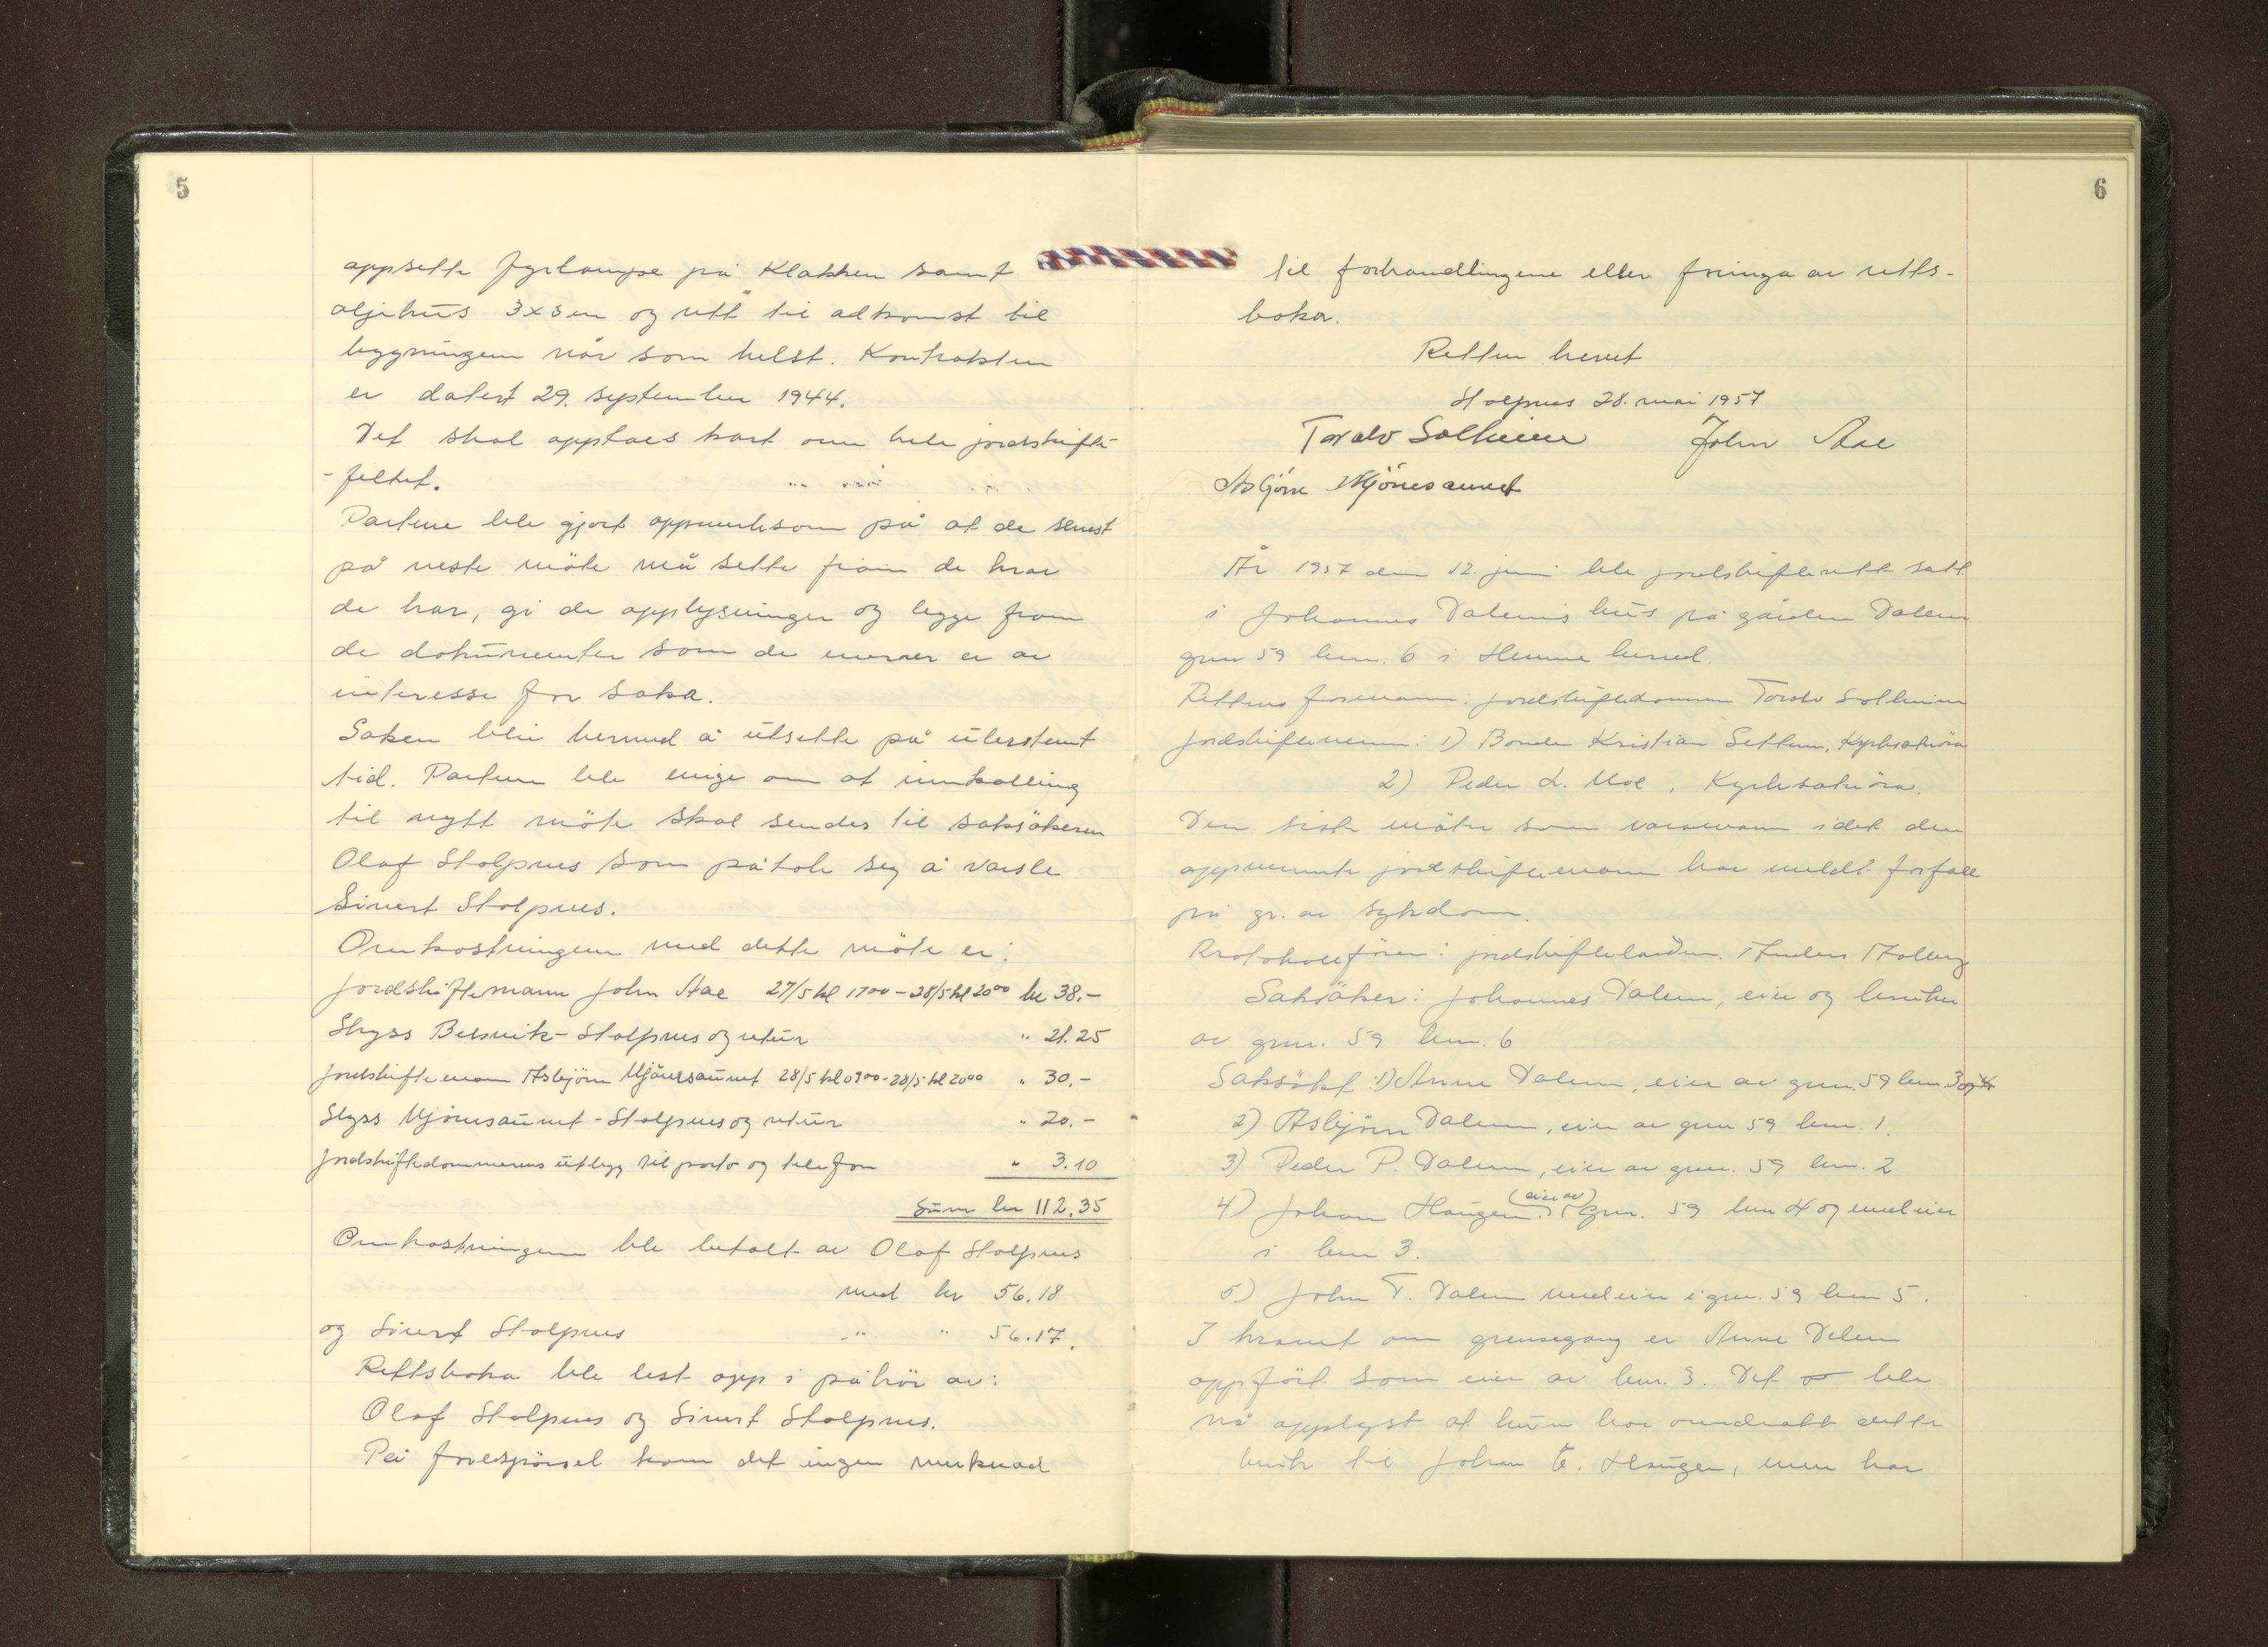 5
oppsette fyrlampe på Klakken samt
oljehus 3x3m og rett til adkomst til
bygningen når som helst. Kontrakten
er datert 29. september 1944.
Det skal opptaes kart over hele jordskifte-
-feltet.
Partene ble gjort oppmerksom på at de senest
på neste möte må sette fram de krav
de har, gi de opplysninger og legge fram
de dokumenter som de mener er av
interesse for saka.
Saken blir hermed å utsette på ubestemt
tid. Partene ble enige om at innkalling
til nytt möte skal sendes til saksökeren
Olaf Stolpnes som påtok seg å varsle
Sivert Stolpnes.
Omkostningene med dette möte er:
Jordskiftemann John Aae 27/5 kl 17⁰⁰ - 28/5 kl 20⁰⁰ kr 38.-
Skyss Belsvik - Stolpnes og retur " 21.25
Jordskiftemann Asbjörn Mjönesaunet 28/5 kl 09⁰⁰ - 28/5 kl 20⁰⁰ " 30.-
Skyss Mjönesaunet - Stolpnes og retur " 20.-
Jordskiftedommerens utlegg til porto og telefon " 3.10
Sum kr 112.35
Omkostningene ble betalt av Olaf Stolpnes
med kr 56.18
og Sivert Stolpnes -"- " 56.17.
Rettsboka ble lest opp i påhör av:
Olaf Stolpnes og Sivert Stolpnes.
På forespörsel kom det ingen merknad
6
til forhandlingene eller föringa av retts-
boka.
Retten hevet
Stolpnes 28. mai 1957
Torolv Solheim John Aae
Asbjörn Mjönesaunet
År 1957 den 12. juni ble jordskifterett satt
i Johannes Dalems hus på gården Dalem
gnr 59 bnr. 6 i Hemne herred.
Rettens formann: jordskiftedommer Torolv Solheim
Jordskiftemenn: 1) Bonde Kristian Settem, Kyrksæteröra
2) Peder L. Moe, Kyrksæteröra.
Den siste möter som varamann idet den
oppnevnte jordskiftemann har meldt forfall
på gr. av sykdom.
Protokollförer: jordskiftekandn. Anders
Saksöker: Johannes Dalem, eier og bruker
av gnr. 59 bnr. 6
Saksökt: 1) Anne Dalem, eier av gnr. 59 bnr. 3 og 4
2) Asbjörn Dalem, eier av gnr 59 bnr. 1.
3) Peder P. Dalem, eier av gnr. 59 bnr. 2
4) Johan Haugen (eier av) gnr. 59 bnr 4 og medeier
i bnr 3.
5) John T. Dalem medeier i gnr. 59 bnr 5.
I kravet om grensegang er Anne Dalem
oppfört som eier av bnr. 3. Det ble
nå opplyst at hun har overdratt dette
bruk til Johan E. Haugen, men har